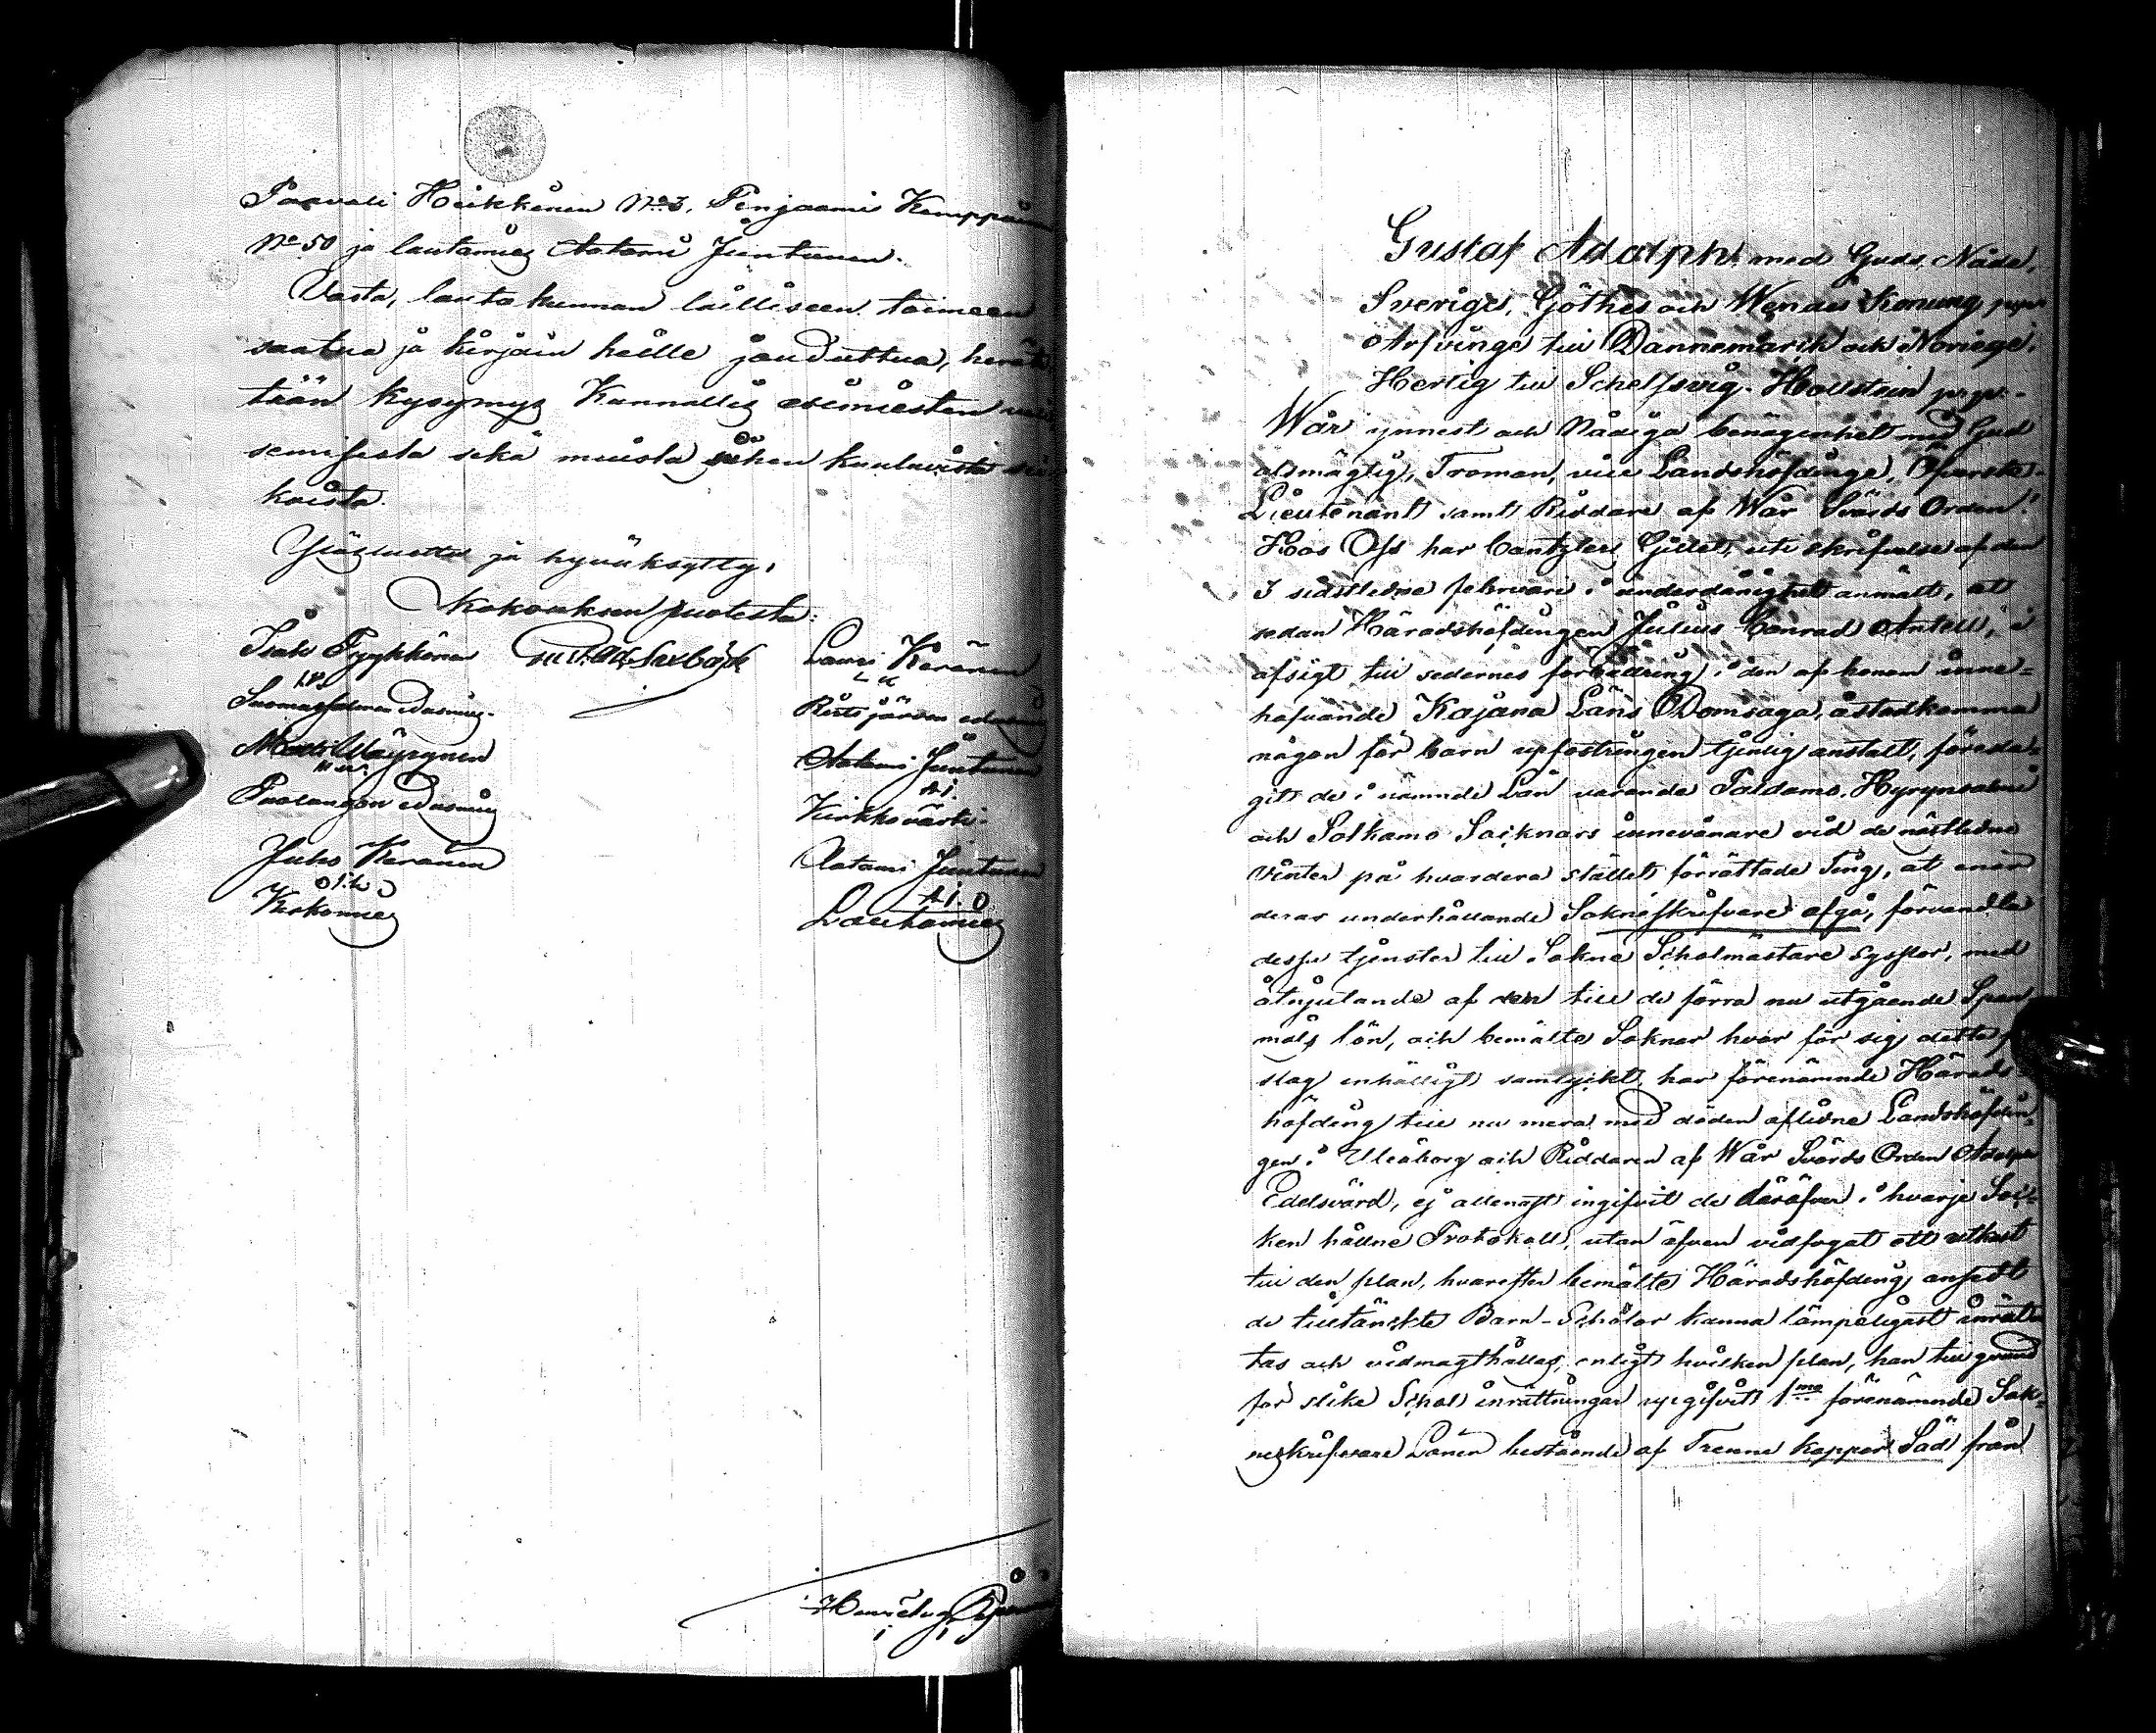 Paavali Heikkinen No 3, Penjaami Kemppäinen
No 50 ja lautamies Aatami Juntunen.
Vasta, lautakunnan lailliseen toimeen
saatua ja kirjain heille jauduttua, herä
tään kysymys Kunnallis esimiesten
semisesta sekä muista siihen kuuluvista
koista.
Ylösluettu ja hyväksytty.
Kokouksen puolesta:
Isak Pyykkönen
I.P.
Suomussalmen Edusmies.
Matti Wäyrynen
M.W.
Puolangon Edusmies
Juho Keränen
Kirkonmies
Lauri Keränen
L K
Ristijärven edusmies
Aatami Juntunen
A.J.
Kirkkovärti.
Aatami Juntunen
A.J.
Lautamies
Gustaf Adolph, med Guds Nåde,
Sveriges, Göthes och Wendes Konung pp
Arfvinge till Dannemark och Norrige,
Hertig till Schelfsvig-Hollstein pp.
Wår ynnest och Nådiga benägenhet med Gud
alsmägtig, Troman, vice Landshöfdinge, Öfverste
Lieutenant samt Riddare af Wår Svärds Orden!
Hos Oss har Cantzlers Gillet, uti skrifvelse af den
3 sidstledne februari i underdånighet anmält, at
sedan Häradshöfdingen Julius Conrad Antell, i
afsigt till sedernes förbättring i den af honom inne-
hafvande Kajana Läns Domsaga, åstadkomma
någon för barn upfostringen tjenlig anstalt, föreda-
git de i nämnde Län varande Paldamo, Hyrynsalmi
och Sotkamo Soknars innevånare vid de nästledne
Vinter på hvardera stället förrättade Ting, at enär
deras underhållande Sokneskrifvare afgå, förvandla
desse tjenster till Sokne Scholmästare Sysslor, med
åtnjutande af den till de förra nu utgående Span-
måls lön, och bemälte Soknar hvar för sig detta
slag enhälligt samtyckt, har förenämnde Härads
höfding till nu mera med döden aflidne Landshöfdin-
gen i Uleåborg och Riddaren af Wår Svärds Orden Adolph
Edelsvärd, ej allenast ingifvit de däröfver i hvarje Soc-
ken hållne Protokoll, utan äfven vidfogat ett utkast
till den plan, hvarefter bemälte Häradshöfding ansedt
de tilltänkte Barn-Scholar kunna lämpeligast inrät-
tas och vidmagthållas, enligt hvilken plan, han till grund
för slike Schol inrättningar upgifvit 1mo förenämnde Sok-
neskrifvare Lönen bestående af Trenne kappar Säd från